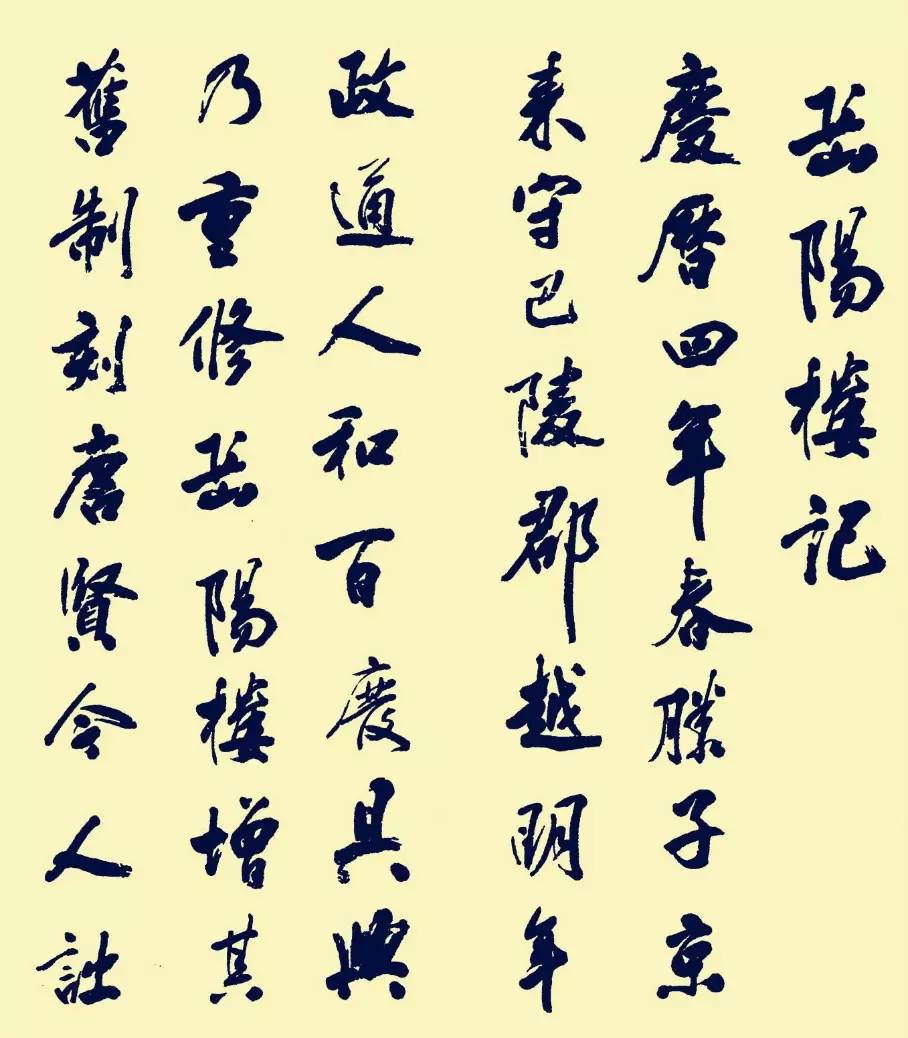 岳陽樓記
慶曆四年春滕子京
來守巴陵郡越明年
政通人和百廢具興
乃重修岳陽樓增其
舊制刻唐賢今人詩